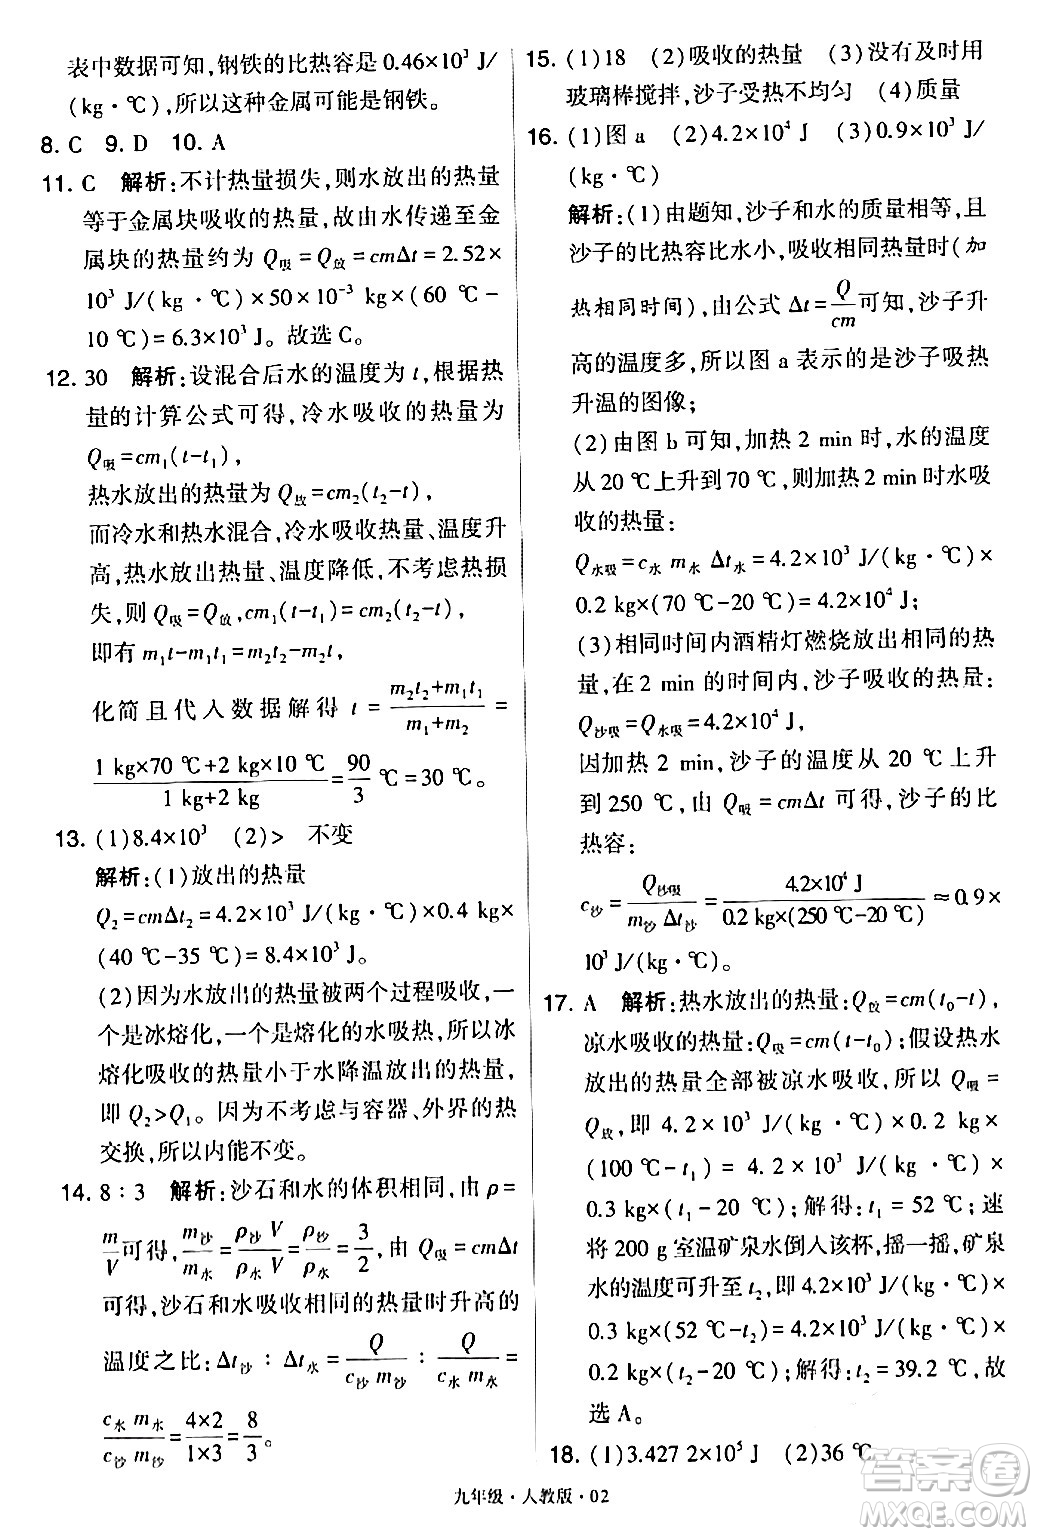 表中数据可知,钢铁的比热容是0.46×10³ J/
(kg·℃),所以这种金属可能是钢铁。
8. C  9. D  10. A
11. C  解析:不计热量损失,则水放出的热量
等于金属块吸收的热量,故由水传递至金
属块的热量约为 Q吸=Q放=cmΔt=2.52×
10³ J/(kg·℃)×50×10⁻³ kg×(60 ℃-
10 ℃)=6.3×10³ J。故选C。
12. 30  解析:设混合后水的温度为 t,根据热
量的计算公式可得,冷水吸收的热量为
Q吸=cm₁(t-t₁),
热水放出的热量为 Q放=cm₂(t₂-t),
而冷水和热水混合,冷水吸收热量、温度升
高,热水放出热量、温度降低,不考虑热损
失,则 Q吸=Q放,cm₁(t-t₁)=cm₂(t₂-t),
即有 m₁t-m₁t₁=m₂t₂-m₂t,
化简且代入数据解得 t = (m₂t₂+m₁t₁)/(m₁+m₂) =
(1 kg×70 ℃+2 kg×10 ℃)/(1 kg+2 kg)=90/3 ℃=30 ℃。
13. (1)8.4×10³  (2)>  不变
解析:(1)放出的热量
Q₂=cmΔt₂=4.2×10³ J/(kg·℃)×0.4 kg×
(40 ℃-35 ℃)=8.4×10³ J。
(2)因为水放出的热量被两个过程吸收,一
个是冰熔化,一个是熔化的水吸热,所以冰
熔化吸收的热量小于水降温放出的热量,
即 Q₂>Q₁。因为不考虑与容器、外界的热
交换,所以内能不变。
14. 8∶3  解析:沙石和水的体积相同,由 ρ=
m/V可得,m沙/m水=ρ沙V/ρ水V=ρ沙/ρ水=3/2,由 Q吸=cmΔt
可得,沙石和水吸收相同的热量时升高的
温度之比:Δt沙∶Δt水=Q/(c沙m沙)∶Q/(c水m水)=
c水m水/c沙m沙=4×2/1×3=8/3。
15. (1)18  (2)吸收的热量  (3)没有及时用
玻璃棒搅拌,沙子受热不均匀  (4)质量
16. (1)图 a  (2)4.2×10⁴ J  (3)0.9×10³ J/
(kg·℃)
解析:(1)由题知,沙子和水的质量相等,且
沙子的比热容比水小,吸收相同热量时(加
热相同时间),由公式 Δt=Q/cm可知,沙子升
高的温度多,所以图 a 表示的是沙子吸热
升温的图像;
(2)由图 b 可知,加热 2 min 时,水的温度
从 20 ℃上升到 70 ℃,加热 2 min 时水吸
收的热量:
Q水吸=c水m水Δt水=4.2×10³ J/(kg·℃)×
0.2 kg×(70 ℃-20 ℃)=4.2×10⁴ J;
(3)相同时间内酒精灯燃烧放出相同的热
量,在 2 min 的时间内,沙子吸收的热量:
Q沙吸=Q水吸=4.2×10⁴ J,
因加热 2 min,沙子的温度从 20 ℃上升
到 250 ℃,由 Q吸=cmΔt 可得,沙子的比
热容:
c沙=Q沙吸/(m沙Δt沙)=4.2×10⁴ J/(0.2 kg×(250 ℃-20 ℃))≈0.9×
10³ J/(kg·℃)。
17. A  解析:热水放出的热量:Q放=cm(t₀-t),
凉水吸收的热量:Q吸=cm(t-t₀);假设热水
放出的热量全部被凉水吸收,所以 Q吸=
Q放,即 4.2×10³ J/(kg·℃)×0.2 kg×
(100 ℃-t₁)=4.2×10³ J/(kg·℃)×
0.3 kg×(t₁-20 ℃);解得:t₁=52 ℃;速
将 200 g 室温矿泉水倒入该杯,摇一摇,矿泉
水的温度可升至 t₂,即 4.2×10³ J/(kg·℃)×
0.3 kg×(52 ℃-t₂)=4.2×10³ J/(kg·℃)×
0.2 kg×(t₂-20 ℃);解得:t₂=39.2 ℃,故
选A。
18. (1)3.427 2×10⁵ J  (2)36 ℃
九年级·人教版·02
答案圈
MXQE.COM